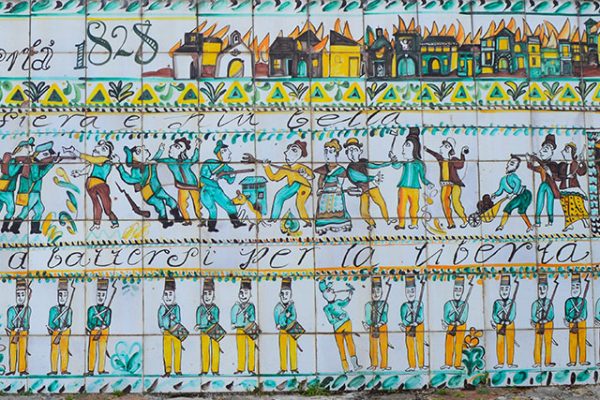 rtà 1828
fiera e più bella
a battersi per la libertà